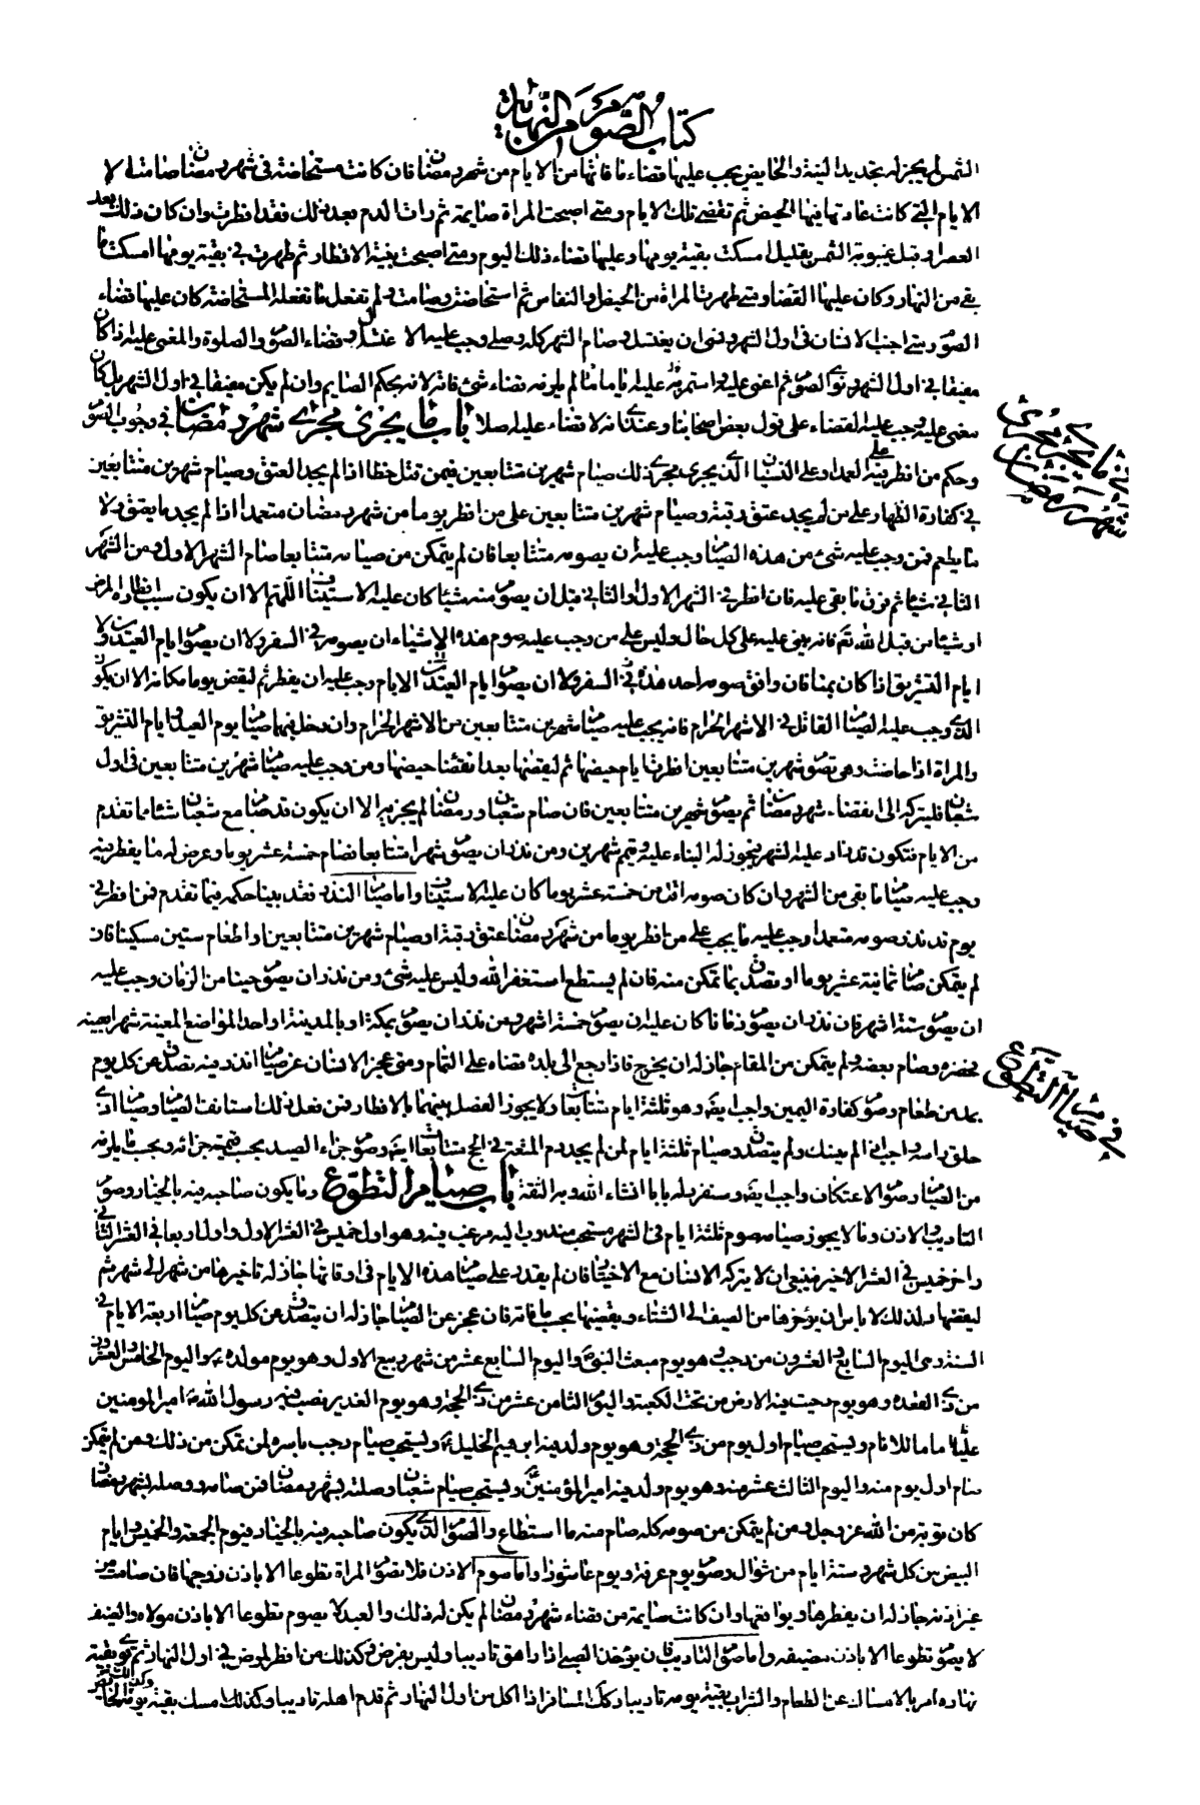 كتاب الصوم من النهاية
الشمس لم يجز له تجديد النية والحايض يجب عليها قضاء ما فاتها من الايام من شهر رمضان فان كانت مستحاضة فى شهر رمضان صامت الا
الايام التى كانت عادتها فيها الحيض ثم تقضى تلك الايام ومتى اصبحت المراة صايمة ثم رات الدم بعد ذلك فقد افطرت وان كان ذلك بعد
العصر او قبل غيبوبة الشمس بقليل امسكت بقية يومها وعليها قضاء ذلك اليوم ومتى اصبحت بنية الافطار ثم طهرت فى بقية يومها امسكت ما
بقى من النهار وكان عليها القضاء ومتى طهرت المراة من الحيض او النفاس ثم استحاضت وصامت ولم تفعل ما تفعله المستحاضة كان عليها قضاء
الصوم ومتى اجنب الانسان فى اول الشهر ونسى ان يغتسل وصام الشهر كله وصلى وجب عليه الاغتسال وقضاء الصوم والصلوة والمغمى عليه اذا كان
مفيقا فى اول الشهر ونوى الصوم ثم اغمى عليه واستمر به عليه اياما لم يلزمه قضاء شئ فاته لانه بحكم الصايم وان لم يكن مفيقا فى اول الشهر بل كان
مغمى عليه وجب عليه القضاء على قول بعض اصحابنا وعندى انه لا قضاء عليه اصلا باب ما يجرى مجرى شهر رمضان فى وجوب الصوم
وحكم من افطر فيه على العمد او على النسيان الذى يجرى مجرى ذلك صيام شهرين متتابعين فيمن قتل خطأ اذا لم يجد العتق وصيام شهرين متتابعين
فى كفارة الظهار على من لم يجد عتق رقبة وصيام شهرين متتابعين على من افطر يوما من شهر رمضان متعمدا اذا لم يجد ما يعتق ولا
ما يطعم فمن وجب عليه شئ من هذه الصيام وجب عليه ان يصومه متتابعا فان لم يتمكن من صيامه متتابعا صام الشهر الاول ومن الشهر
الثانى شيئا ثم فرق ما بقى عليه فان افطر فى الشهر الاول او الثانى قبل ان يصوم منه شيئا كان عليه الاستيناف اللهم الا ان يكون سبب افطاره المرض
او شيئا من قبل الله تع فانه يبنى عليه على كل حال وليس على من وجب عليه صوم هذه الاشياء ان يصومه فى السفر ولا ان يصوم ايام العيدين ولا
ايام التشريق اذا كان بمنا فان وافق صومه احد هذه فى السفر ولا ان يصوم ايام العيدين الايام وجب عليه ان يفطر ثم ليقض يوما مكانه الا ان يكون
الذى وجب عليه الصيام القاتل فى الاشهر الحرم فانه يجب عليه صيام شهرين متتابعين من الاشهر الحرم وان دخل فيهما صيام يوم العيد وايام التشريق
والمراة اذا حاضت وهى تصوم شهرين متتابعين افطرت ايام حيضها ثم ليقضها بعد انقضاء حيضها ومن وجب عليه صيام شهرين متتابعين فى اول
شعبان فليتركه الى انقضاء شهر رمضان ثم يصوم شهرين متتابعين فان صام شعبان ورمضان لم يجزيه الا ان يكون قد صام مع شعبان شيئا مما تقدم
من الايام فتكون قد زاد على الشهر فيجوز له البناء عليه ويتمم شهرين ومن نذر ان يصوم شهرا متتابعا فصام خمسة عشر يوما وعرض له ما يفطر فيه
وجب عليه صيام ما بقى من الشهر وان كان صومه اقل من خمسة عشر يوما كان عليه الاستيناف واما صيام النذر فقد بينا حكمه فيما تقدم فمن افطر فى
يوم قد نذر صومه متعمدا وجب عليه ما يجب على من افطر يوما من شهر رمضان عتق رقبة او صيام شهرين متتابعين او اطعام ستين مسكينا فان
لم يتمكن صام ثمانية عشر يوما او تصدق بما تمكن منه فان لم يستطع استغفر الله وليس عليه شئ ومن نذر ان يصوم حينا من الزمان وجب عليه
ان يصوم ستة اشهر فان نذر ان يصوم زمانا كان عليه ان يصوم خمسة اشهر ومن نذر ان يصوم بمكة او بالمدينة او احد المواضع المعينة شهرا بعينه
فحضره وصام بعضه ولم يتمكن من المقام جاز له ان يخرج فاذا رجع الى بلده قضاه على التمام ومتى عجز الانسان عن صيام ما نذر فيه تصدق عن كل يوم
بمدين طعام وصوم كفارة اليمين واجب ايضا وهو ثلثة ايام متتابعات ولا يجوز الفصل بينهما بالافطار فمن فعل ذلك استانف الصيام وصيام اذى
حلق راسه واجب اذا لم ينسك ولم يتصدق وصيام ثلثة ايام لمن لم يجد دم المتعة فى الحج متتابعات ايضا وصوم جزاء الصيد يجب بقيمة جزائه ويجب ما يلزمه
من الصيام وصوم الاعتكاف واجب ايضا وسنفرد له بابا انشاء الله وبه الثقة باب صيام التطوع وما يكون صاحبه فيه بالخيار وصوم
التاديب والاذن وما لا يجوز صيامه صوم ثلثة ايام فى الشهر مستحب مندوب اليه مرغب فيه وهو اول خميس فى العشر الاول واول اربعا فى العشر الثانى
واخر خميس فى العشر الاخير فينبغى ان لا يتركه الانسان مع الاختيار فان لم يقدر على صيام هذه الايام فى اوقاتها جاز له تاخيرها من شهر الى شهر ثم
ليقضها وكذلك لا باس ان يؤخرها من الصيف الى الشتاء ويقضيها بحسب ما فاته فان عجز عن الصيام جاز له ان يتصدق عن كل يوم صيام اربعة الايام فى
السنة وهى اليوم السابع والعشرون من رجب وهو يوم مبعث النبى واليوم السابع عشر من شهر ربيع الاول وهو يوم مولده واليوم الخامس والعشرون
من ذى القعدة وهو يوم دحيت فيه الارض من تحت الكعبة واليوم الثامن عشر من ذى الحجة وهو يوم الغدير نصب فيه رسول الله امير المومنين
عليا اماما للانام ويستحب صيام اول يوم من ذى الحجة وهو يوم ولد فيه ابرهيم الخليل ويستحب صيام رجب باسره لمن تمكن من ذلك ومن لم يتمكن
صام اول يوم منه واليوم الثالث عشر منه وهو يوم ولد فيه امير المؤمنين ويستحب صيام شعبان وصلته بشهر رمضان فمن صامه ووصله بشهر رمضان
كان توبة من الله عز وجل ومن لم يتمكن من صومه كله صام منه ما استطاع والصوم الذى يكون صاحبه فيه بالخيار فيوم الجمعة والخميس وايام
البيض من كل شهر وستة ايام من شوال وصوم يوم عرفة ويوم عاشورا واما صوم الاذن فلا تصوم المراة تطوعا الا باذن زوجها فان صامت من
غير اذنه جاز له ان يفطرها ويواقعها وان كانت صايمة من قضاء شهر رمضان لم يكن له ذلك والعبد لا يصوم تطوعا الا باذن مولاه والضيف
لا يصوم تطوعا الا باذن مضيفه واما صوم التاديب فان يؤخذ الصبى اذا راهق تاديبا وليس بفرض وكذلك من افطر لمرض فى اول النهار ثم قوى بقية
نهاره امر بالامساك عن الطعام والشراب بقية يومه تاديبا وكذلك المسافر اذا اكل من اول النهار ثم قدم اهله تاديبا وكذلك امسك بقية يومه
فى ما يجرى مجرى
شهر رمضان
فى صيام التطوع